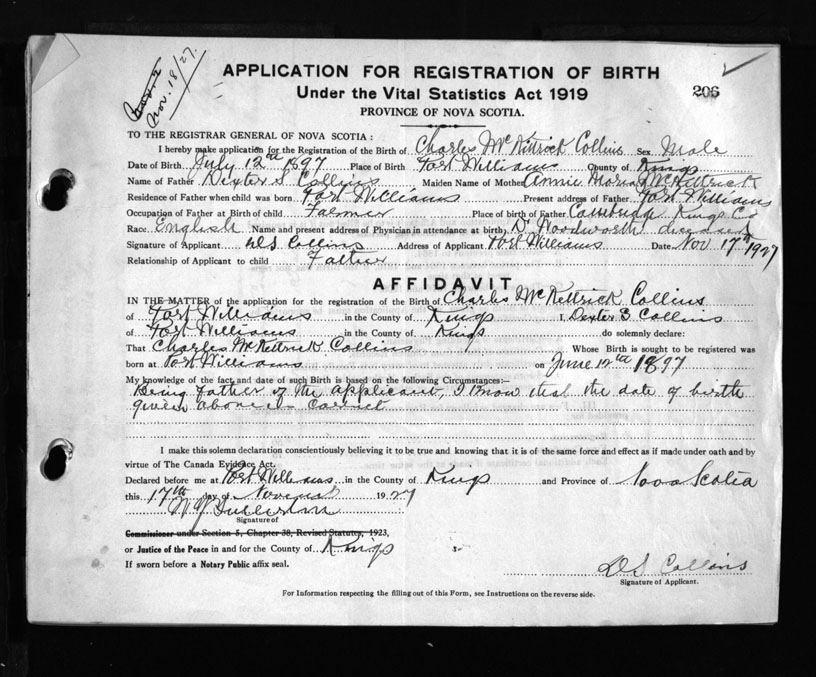 Nov. 18/27.
206
APPLICATION FOR REGISTRATION OF BIRTH
Under the Vital Statistics Act 1919
PROVINCE OF NOVA SCOTIA.
TO THE REGISTRAR GENERAL OF NOVA SCOTIA :
I hereby make application for the Registration of the Birth of Charles McKittrick Collins Sex Male
Date of Birth July 12th 1897 Place of Birth Port Williams County of Kings
Name of Father Dexter S Collins Maiden Name of Mother Annie McKittrick
Residence of Father when child was born Port Williams Present address of Father Port Williams
Occupation of Father at Birth of child Farmer Place of birth of Father Kings Co
Race English Name and present address of Physician in attendance at birth Dr Woodworth deceased
Signature of Applicant DS Collins Address of Applicant Port Williams Date Nov 17th 1927
Relationship of Applicant to child Father
AFFIDAVIT
IN THE MATTER of the application for the registration of the Birth of Charles McKittrick Collins
of Port Williams in the County of Kings I, Dexter S. Collins
of Port Williams in the County of Kings do solemnly declare:
That Charles McKittrick Collins Whose Birth is sought to be registered was
born at Port Williams on June 12th 1897
My knowledge of the fact and date of such Birth is based on the following Circumstances:—
Being father of the applicant, I know that the date of birth
given above is correct
I make this solemn declaration conscientiously believing it to be true and knowing that it is of the same force and effect as if made under oath and by
virtue of The Canada Evidence Act.
Declared before me at Port Williams in the County of Kings and Province of Nova Scotia
this 17th day of November 1927
Signature of
Commissioner under Section 5, Chapter 38, Revised Statutes, 1923,
or Justice of the Peace in and for the County of Kings
If sworn before a Notary Public affix seal.
DS Collins
Signature of Applicant.
For Information respecting the filling out of this Form, see Instructions on the reverse side.